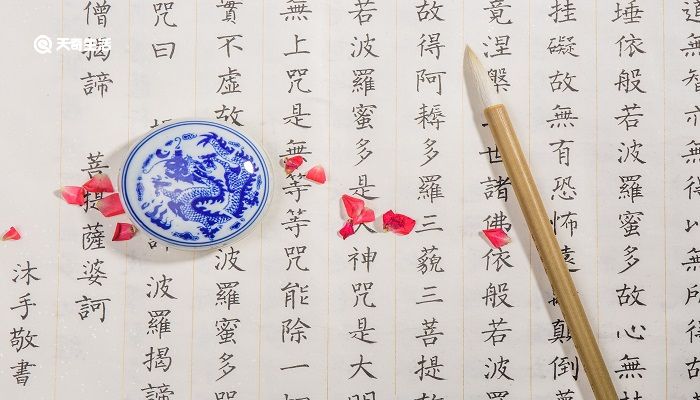 道無智亦無得以無所得故
埵依般若波羅蜜多故心無挂
挂礙故無有恐怖遠顛倒夢
竟涅槃世諸佛依般若波
故得阿耨多羅三藐三菩提故
若波羅蜜多是大神咒是大明
無上咒是無等等咒能除一切
實不虛故 波羅蜜多咒
咒曰 波羅揭諦
僧揭諦 菩提薩婆訶
沐手敬書
天奇生活